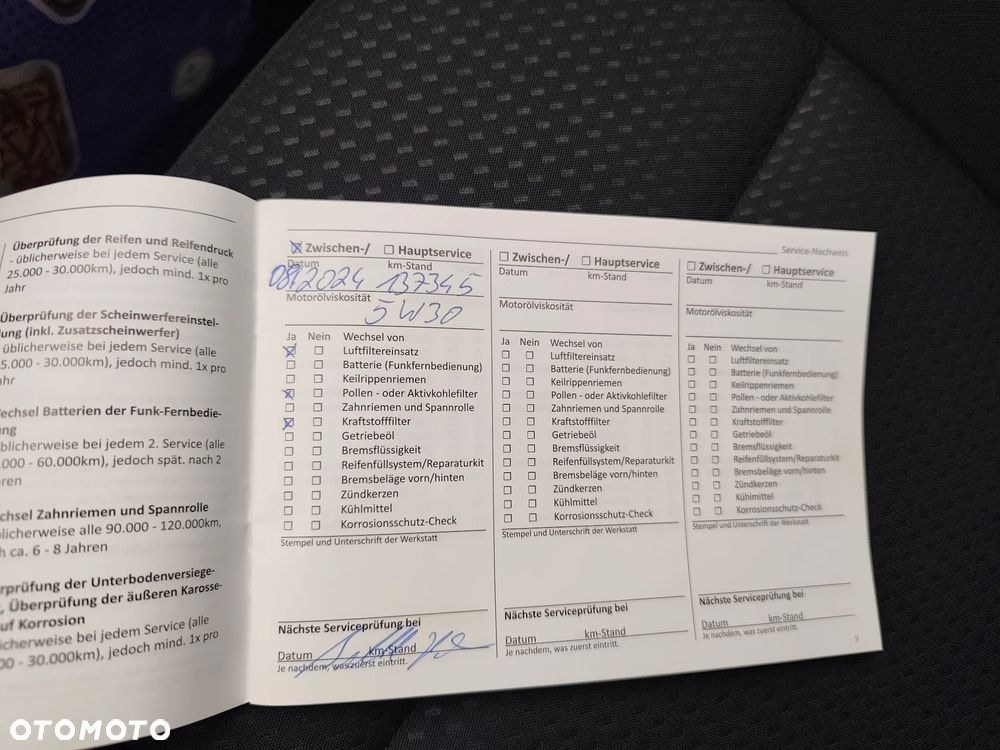 Überprüfung der Reifen und Reifendruck
- üblicherweise bei jedem Service (alle
25.000 - 30.000km), jedoch mind. 1x pro
Jahr
Überprüfung der Scheinwerfereinstel-
lung (inkl. Zusatzscheinwerfer)
üblicherweise bei jedem Service (alle
5.000 - 30.000km), jedoch mind. 1x pro
ahr
echsel Batterien der Funk-Fernbedie-
ng
üblicherweise bei jedem 2. Service (alle
.000 - 60.000km), jedoch spät. nach 2
ren
chsel Zahnriemen und Spannrolle
licherweise alle 90.000 - 120.000km,
h ca. 6 - 8 Jahren
rprüfung der Unterbodenversiege-
, Überprüfung der äußeren Karosse-
uf Korrosion
icherweise bei jedem Service (alle
00 - 30.000km), jedoch mind. 1x pro
☒ Zwischen-/ ☐ Hauptservice
Datum km-Stand
08.2024 137345
Motorölviskosität
5W30
Ja Nein Wechsel von
☒ ☐ Luftfiltereinsatz
☐ ☐ Batterie (Funkfernbedienung)
☐ ☐ Keilrippenriemen
☒ ☐ Pollen - oder Aktivkohlefilter
☐ ☐ Zahnriemen und Spannrolle
☒ ☐ Kraftstofffilter
☐ ☐ Getriebeöl
☐ ☐ Bremsflüssigkeit
☐ ☐ Reifenfüllsystem/Reparaturkit
☐ ☐ Bremsbeläge vorn/hinten
☐ ☐ Zündkerzen
☐ ☐ Kühlmittel
☐ ☐ Korrosionsschutz-Check
Stempel und Unterschrift der Werkstatt
Nächste Serviceprüfung bei
Datum km-Stand
Je nachdem, was zuerst eintritt.
☐ Zwischen-/ ☐ Hauptservice
Datum km-Stand
Motorölviskosität
Ja Nein Wechsel von
☐ ☐ Luftfiltereinsatz
☐ ☐ Batterie (Funkfernbedienung)
☐ ☐ Keilrippenriemen
☐ ☐ Pollen - oder Aktivkohlefilter
☐ ☐ Zahnriemen und Spannrolle
☐ ☐ Kraftstofffilter
☐ ☐ Getriebeöl
☐ ☐ Bremsflüssigkeit
☐ ☐ Reifenfüllsystem/Reparaturkit
☐ ☐ Bremsbeläge vorn/hinten
☐ ☐ Zündkerzen
☐ ☐ Kühlmittel
☐ ☐ Korrosionsschutz-Check
Stempel und Unterschrift der Werkstatt
Nächste Serviceprüfung bei
Datum km-Stand
Je nachdem, was zuerst eintritt.
Service-Nachweis
☐ Zwischen-/ ☐ Hauptservice
Datum km-Stand
Motorölviskosität
Ja Nein Wechsel von
☐ ☐ Luftfiltereinsatz
☐ ☐ Batterie (Funkfernbedienung)
☐ ☐ Keilrippenriemen
☐ ☐ Pollen - oder Aktivkohlefilter
☐ ☐ Zahnriemen und Spannrolle
☐ ☐ Kraftstofffilter
☐ ☐ Getriebeöl
☐ ☐ Bremsflüssigkeit
☐ ☐ Reifenfüllsystem/Reparaturkit
☐ ☐ Bremsbeläge vorn/hinten
☐ ☐ Zündkerzen
☐ ☐ Kühlmittel
☐ ☐ Korrosionsschutz-Check
Stempel und Unterschrift der Werkstatt
Nächste Serviceprüfung bei
Datum km-Stand
Je nachdem, was zuerst eintritt.
9
OTOMOTO